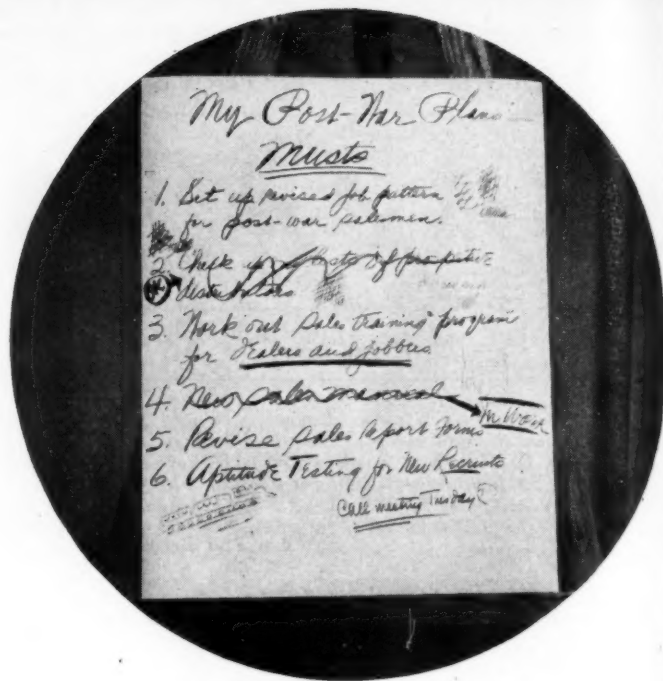 My Post-War Plans
Musts
1. Set up revised job pattern
for post-war salesmen.
2. Check up of
distributors
3. Work out sales training program
for dealers and jobbers
4. New sales manual
In Work
5. Revise sales report Forms
6. Aptitude Testing for New Recruits
Call meeting Tuesday